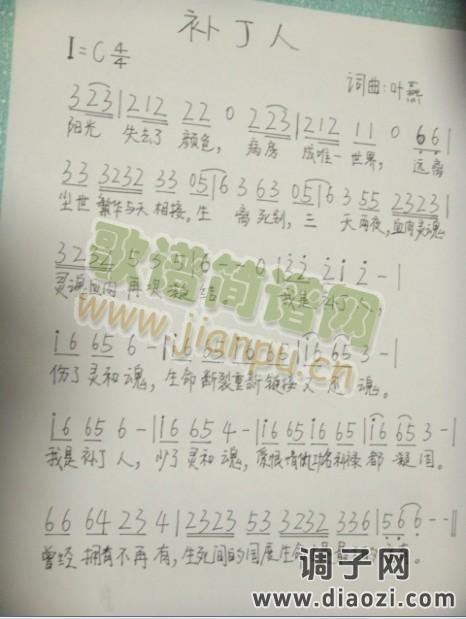 补丁人
1=C 4/4
词曲:叶燕
3 2 3 | 2 1 2 2 2 0 2 2 3 | 2 1 2 1 1 0 6 6 |
阳光 失去了 颜色, 病房 成唯一 世界, 远离
3 3 3 2 3 2 3 3 0 5 | 6 3 6 3 0 5 | 6 3 5 5 2 3 2 3 |
尘世 繁华与天 相接。生 离死别, 三 天两夜,血肉灵魂
3 2 3 4 5 3 5 | 6 - - 0 | i 2 2 2 i 2 - |
灵魂血肉 再次凝结 我是补丁人,
i 6 6 5 6 - | i 6 6 5 i 6 6 5 | i 6 6 5 3 - |
伤了灵和魂, 生命断裂重新链接 魂。
i 6 6 5 6 - | i 6 6 5 4 - | i 6 6 5 i 6 6 5 | i 6 6 5 3 - |
我是补丁人, 少了灵和魂, 爱恨情仇功名利禄 都 凝固。
6 6 6 4 2 3 4 | 2 3 2 3 5 3 3 2 3 2 3 3 6 | 5 6 6 - - ||
曾经 拥有不再有, 生死间的 生命
歌谱简谱网
www.jianpu.cn
调子网
www.diaozi.com